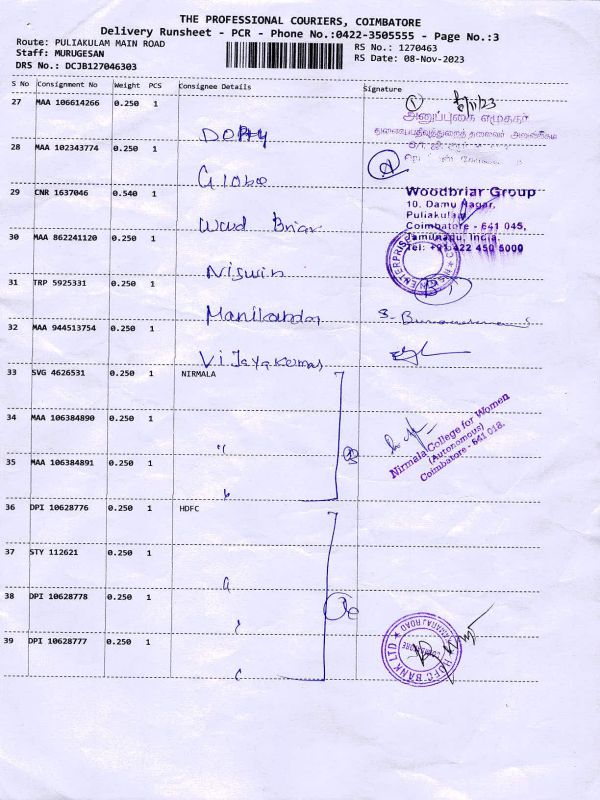 THE PROFESSIONAL COURIERS, COIMBATORE
Delivery Runsheet - PCR - Phone No.:0422-3505555 - Page No.:3
Route: PULIAKULAM MAIN ROAD
Staff: MURUGESAN
DRS No.: DCJB127046303
RS No.: 1270463
RS Date: 08-Nov-2023
S No Consignment No Weight PCS Consignee Details Signature
27 MAA 106614266 0.250 1
28 MAA 102343774 0.250 1
Globe
29 CNR 1637046 0.540 1
Wood Briar
Woodbriar Group
10, Damu Nagar,
Puliakulam
Coimbatore - 641 045,
Tamilnadu, India.
Tel: +91 422 450 5000
30 MAA 862241120 0.250 1
Niswin
31 TRP 5925331 0.250 1
Manikandan
32 MAA 944513754 0.250 1
Vijayakumar
33 SVG 4626531 0.250 1 NIRMALA
34 MAA 106384890 0.250 1
Nirmala College for Women
(Autonomous)
Coimbatore - 641 018.
35 MAA 106384891 0.250 1
36 DPI 10628776 0.250 1 HDFC
37 STY 112621 0.250 1
38 DPI 10628778 0.250 1
39 DPI 10628777 0.250 1
HDFC BANK LTD
COIMBATORE